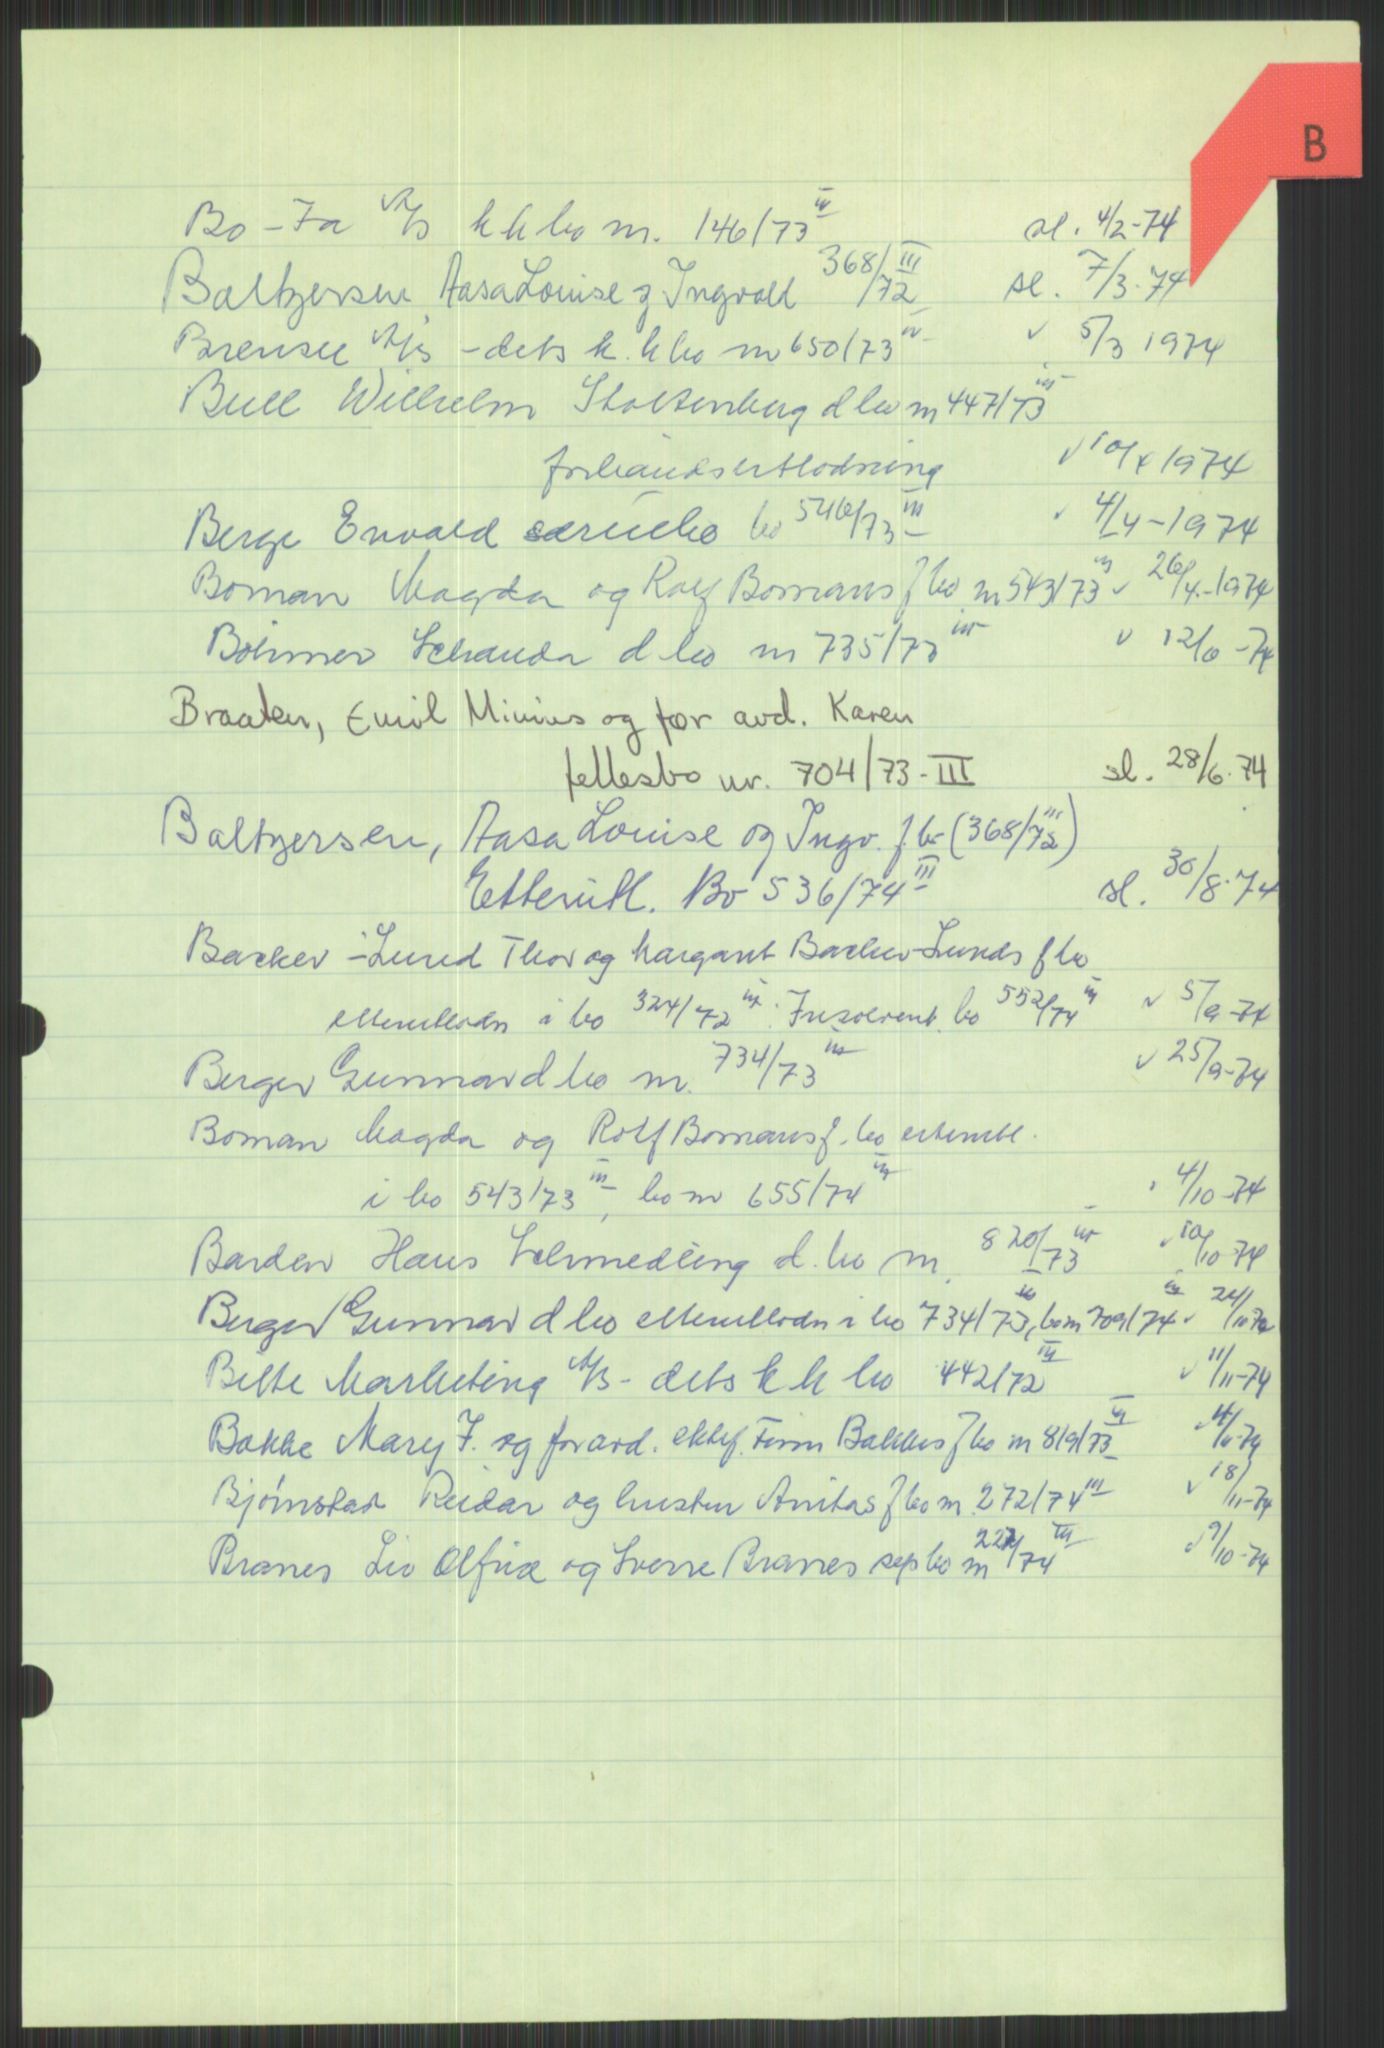 B
Bo-Fa A/S k k bo nr. 146/73 III sl. 4/2-74
Baltzersen, Aasa Louise og Ingvald 368/72 III sl. 7/3-74
A/S - dets k.k bo nr 650/73 III v 5/3 1974
Bull Wilhelm Stoltenberg d bo nr 447/73 III
forhåndsutlodning v 10/4 1974
Berge Envald særskebo bo 546/73 III v 4/4-1974
Boman Magda og Rolf Bomans f bo nr 543/73 III v 26/4-1974
Böhmer d bo nr 735/73 III v 12/6-74
Braaten, Emil Minius og før avd. Karen
fellesbo nr. 704/73-III sl. 28/6-74
Baltzersen, Aasa Louise og Ingv. f.bo (368/72 III)
Etterutl. Bo 536/74 III sl. 30/8-74
Backer-Lund Thor og Margaret Backer-Lunds f bo
etterutlodn i bo 324/72 III. Insolvent bo 552/74 III v 5/9-74
Berger Gunnar d bo nr. 734/73 III v 25/9-74
Boman Magda og Rolf Bomans f. bo etterutl.
i bo 543/73 III, bo nr 655/74 III 4/10-74
Barder Hans Schmedling d. bo nr. 820/73 III v 10/10-74
Berger Gunnar d bo etterutlodn i bo 734/73 III, bo nr 709/74 III v 24/10-74
Bitte Marketing A/S - dets k k bo 442/72 III v 11/11-74
Bakke Mary F. og før avd. ektef. Finn Bakkes f bo nr 819/73 III
Bjørnstad Reidar og hustru Anitas f bo nr. 272/74 III v 18/11-74
Branes Liv og Sverre Branes sep bo nr 74 III v 9/10-74